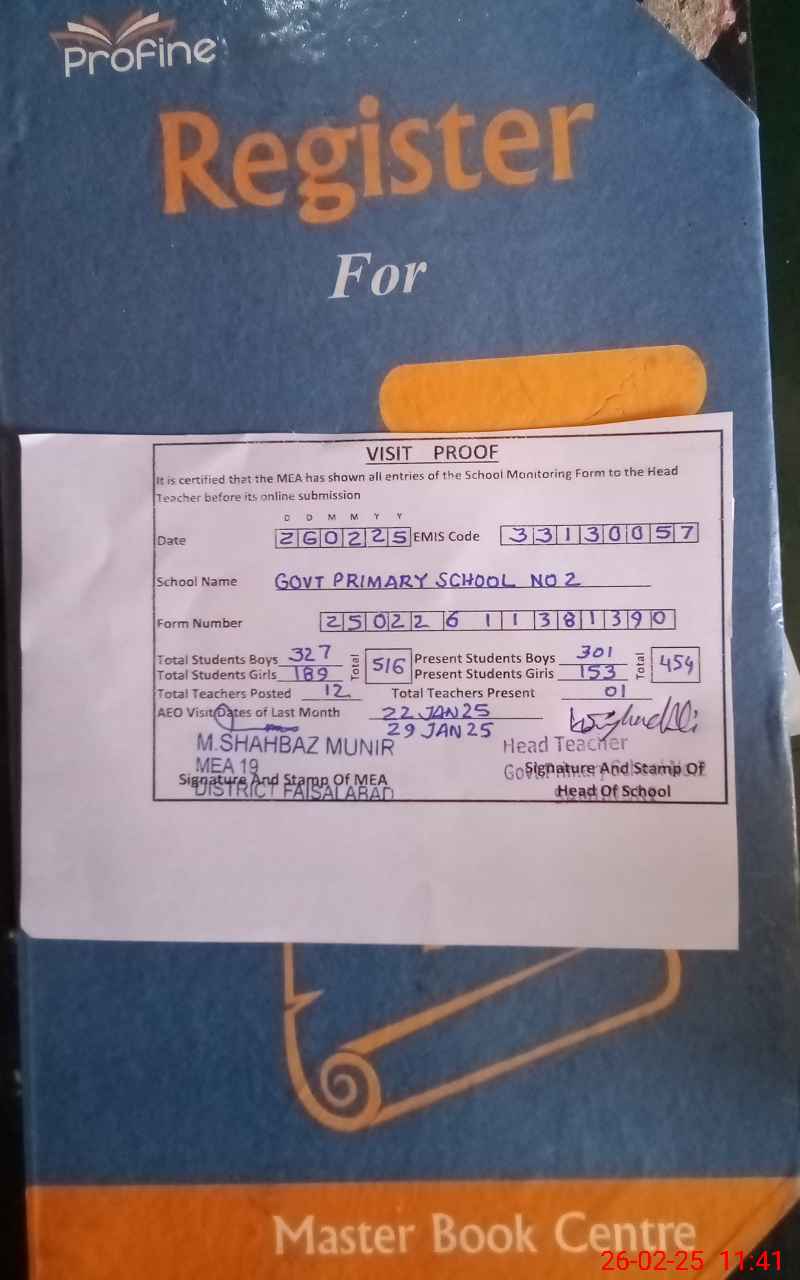 Profine
Register
For
VISIT PROOF
It is certified that the MEA has shown all entries of the School Monitoring Form to the Head
Teacher before its online submission
D D M M Y Y
Date 260225 EMIS Code 33130057
School Name GOVT PRIMARY SCHOOL NO 2
Form Number 25022611381390
Total Students Boys 327 Total 516 Present Students Boys 301 Total 454
Total Students Girls 189 Present Students Girls 153
Total Teachers Posted 12 Total Teachers Present 01
AEO Visit Dates of Last Month 22 JAN 25
29 JAN 25
M.SHAHBAZ MUNIR Head Teacher
MEA 19
Signature And Stamp Of MEA Signature And Stamp Of
DISTRICT FAISALABAD Head Of School
Master Book Centre
26-02-25 11:41